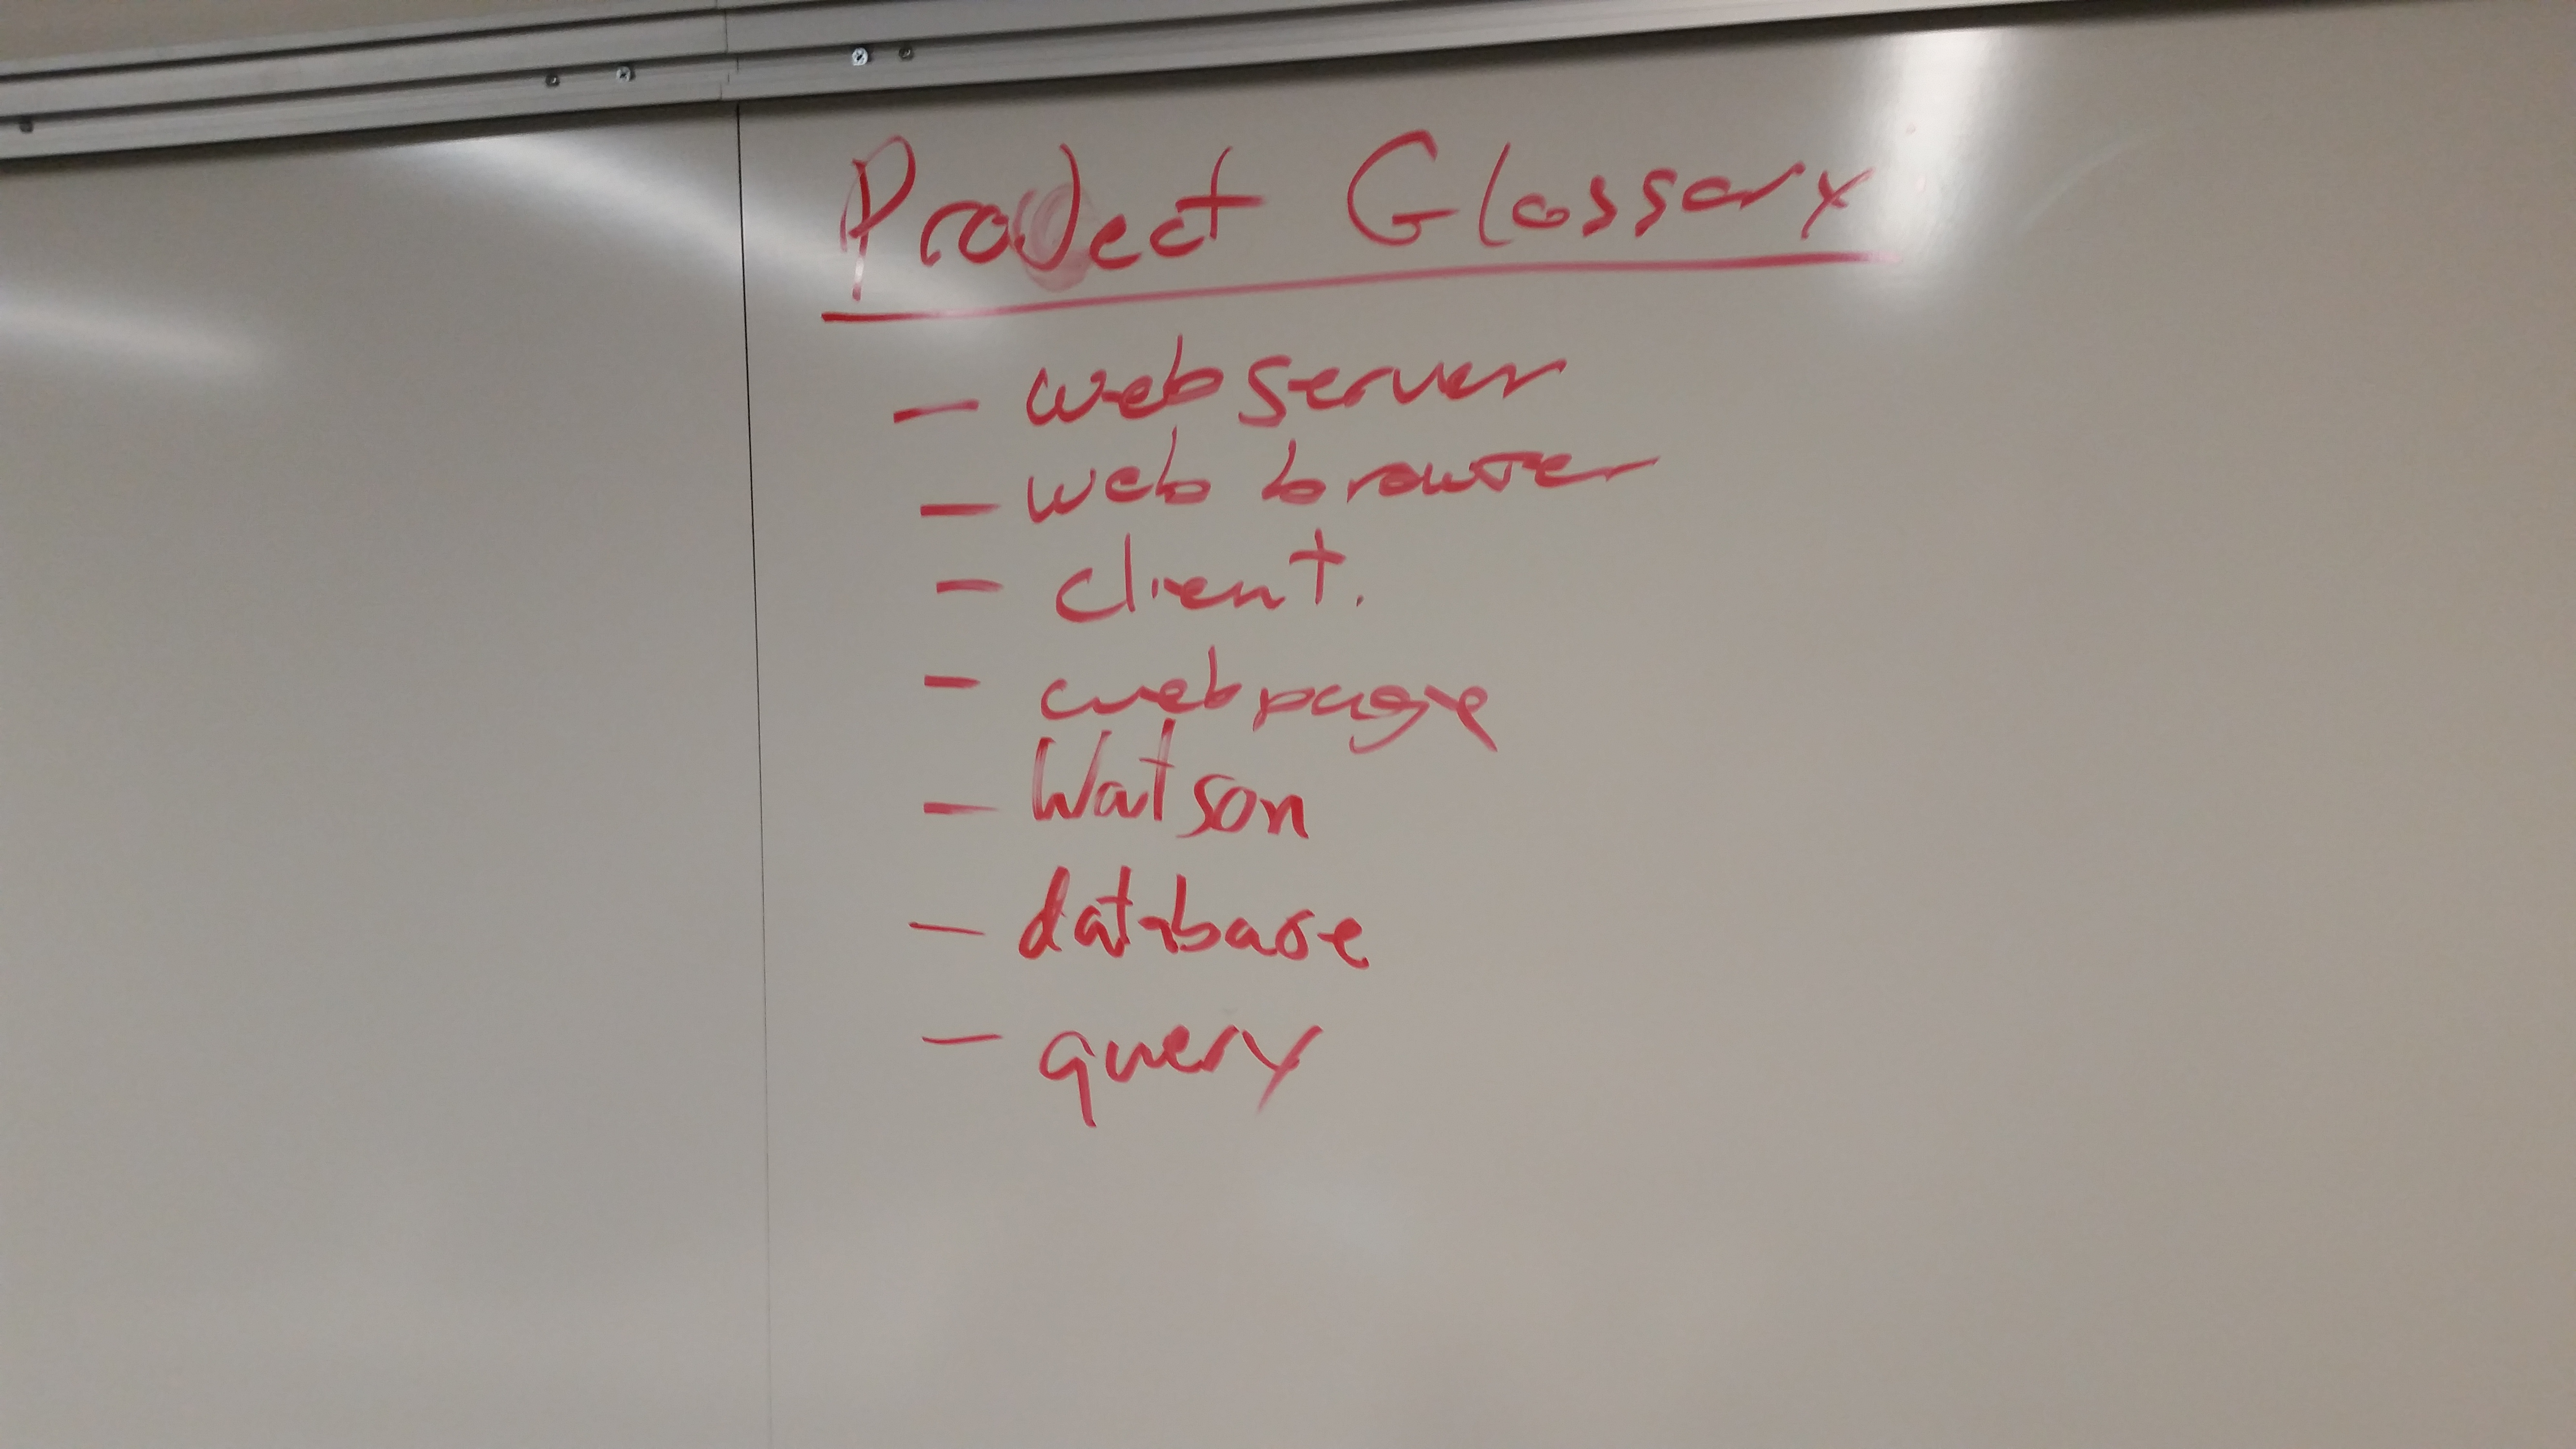 Project Glossary
- web server
- web browser
- client.
- webpage
- Watson
- database
- query